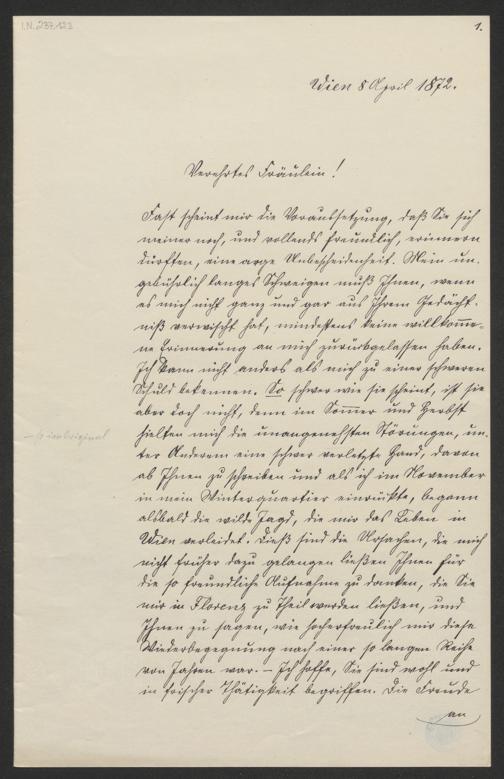 I.N. 237.123
1.
Wien 8 April 1872.
Verehrtes Fräulein!
Fast scheint mir die Voraussetzung, daß Sie sich
meiner noch, und vollends freundlich, erinnern
dürften, eine arge Unbescheidenheit. Mein un-
gebührlich langes Schweigen muß Ihnen, wenn
es mich nicht ganz und gar aus Ihrem Gedächt-
niß verwischt hat, mindestens keine willkomme-
ne Erinnerung an mich zurückgelassen haben.
Ich kann nicht anders als mich zu einer schweren
Schuld bekennen. So schwer wie sie scheint, ist sie
aber doch nicht, denn im Sommer und Herbst
hielten mich die unangenehmsten Störungen, un-
ter Anderem eine schwer verletzte Hand, davon
ab Ihnen zu schreiben und als ich im November
in mein Winterquartier einrückte, begann
alsbald die wilde Jagd, die mir das Leben in
Wien verleidet. Dieß sind die Ursachen, die mich
nicht früher dazu gelangen ließen Ihnen für
die so freundliche Aufnahme zu danken, die Sie
mir in Florenz zu Theil werden ließen, und
Ihnen zu sagen, wie hocherfreulich mir diese
Wiederbegegnung nach einer so langen Reihe
von Jahren war. – Ich hoffe, Sie sind wohl und
in frischer Thätigkeit begriffen. Die Freude
an
– so im Original